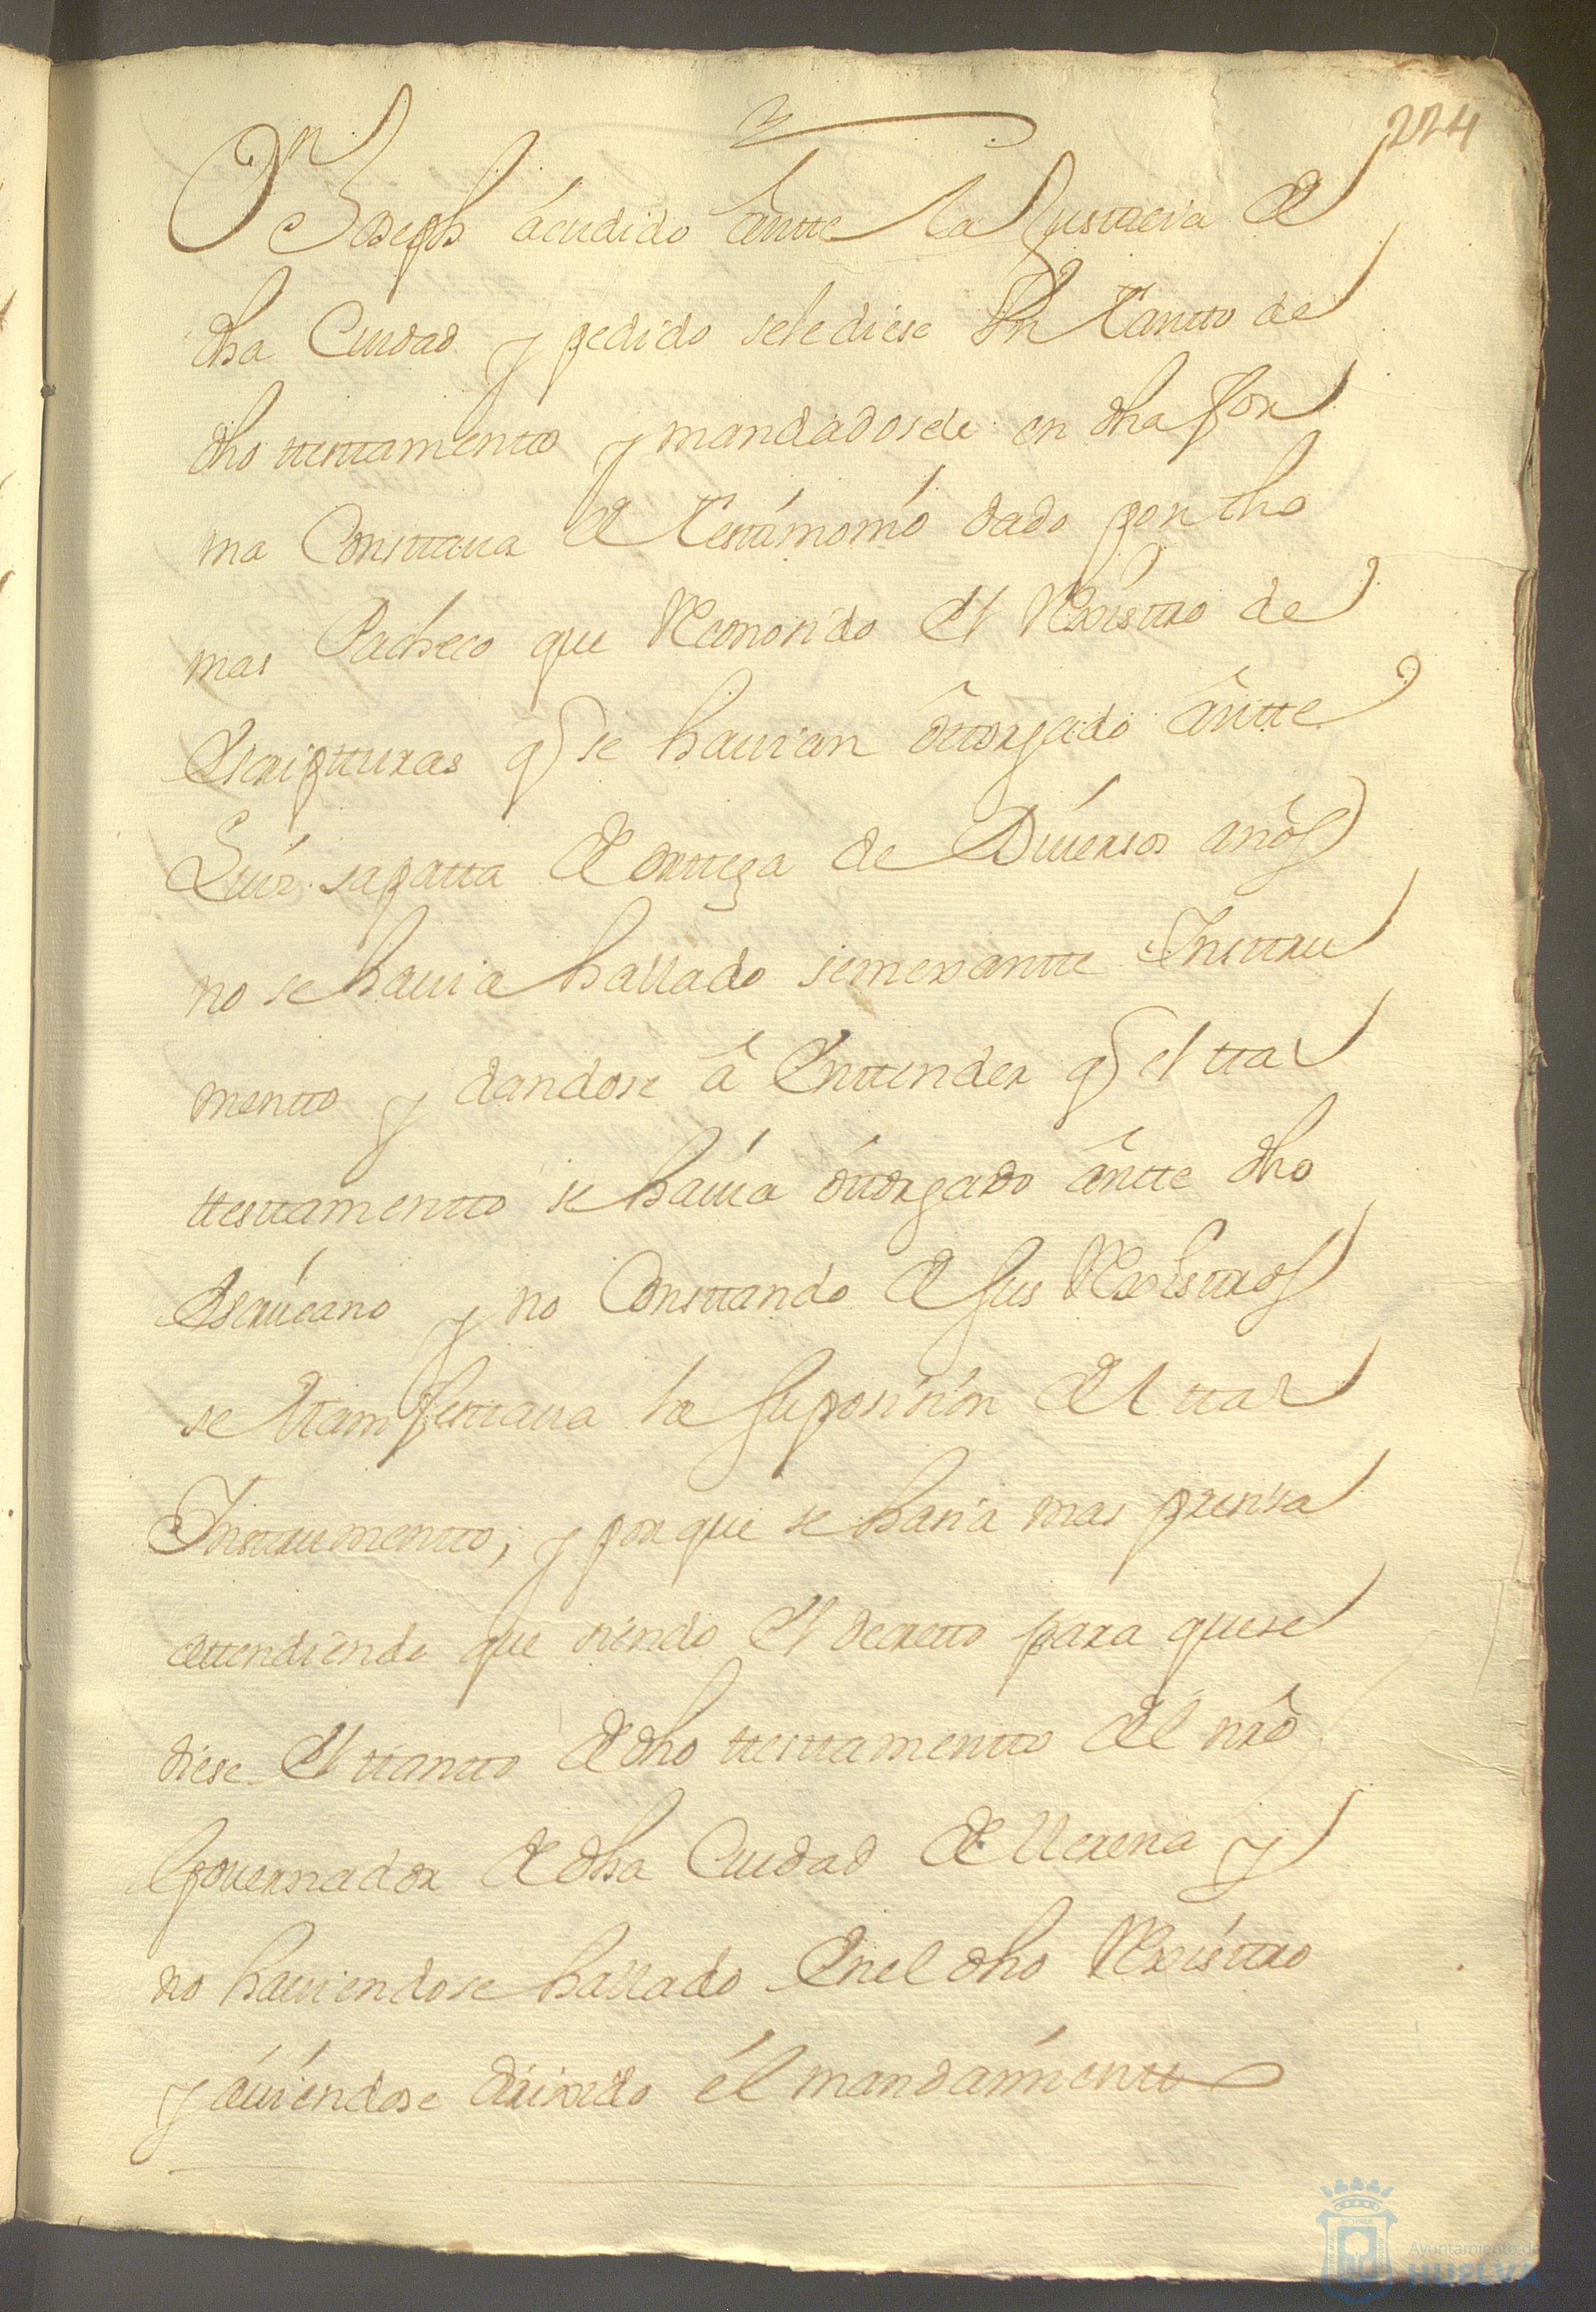 224
Dn Joseph acudido ântte la Justicia de
dha Ciudad y pedido se le diese Vn tantto de
dho ttesttamentto y mandadosele en dha for
ma Consttaua de Testtimonio dado por tho
mas Pacheco que Reconosido el Rexisttro de
Escriptturas q se hauian ôttorgado ântte
Luis sapatta de orttega de Diuersos años
no se hauia hallado semexantte Insttru
mentto y dandose â Enttender q el ttal
ttesttamentto se hauia ottorgado ântte dho
Escriuano y no Consttando de sus Rexisttros
se Manifesttaua la suposision del ttal
Instrumentto, y porque se haria mas presisa
attendiendo que siendo el decretto para que se
diese el ttantto de dho ttesttamentto del nrô
Gouernador de dha Ciudad de llerena y
no hauiendose hallado En el dho Rexisttro
y auiendose dirixido él mandamientto
Ayuntamiento de
HUELVA